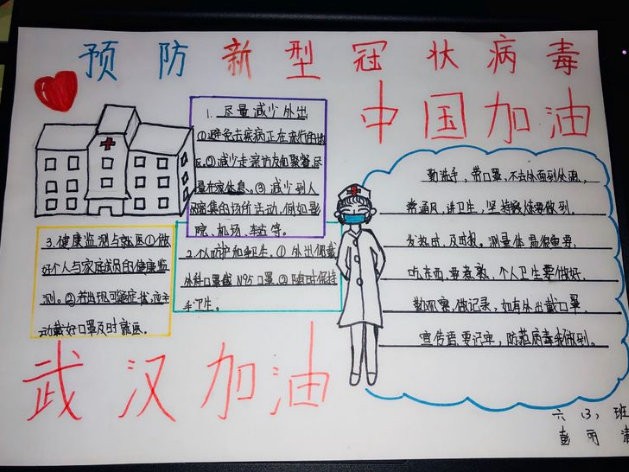 预防新型冠状病毒
中国加油
1. 尽量减少外出
①避免去疾病正在流行的地
区。②减少走亲访友和聚餐尽
量在家休息。③减少到人
员密集的场所活动,例如影
院、机场、车站等。
2.个人防护和卫生。①外出佩戴
外科口罩或N95口罩②随时保持
手卫生。
3.健康监测与就医①做
好个人与家庭成员的健康监
测。②若出现可疑症状,应主
动戴好口罩及时就医。
勤洗手,带口罩,不去外面到处逛,
常通风,讲卫生,坚持锻炼要做到,
发热时,及时报,测量体温很重要,
吃东西,要煮熟,个人卫生要做好,
勤观察,做记录,如有外出戴口罩,
宣传语要记牢,防范病毒我做到。
武汉加油
六(3)班
彭雨